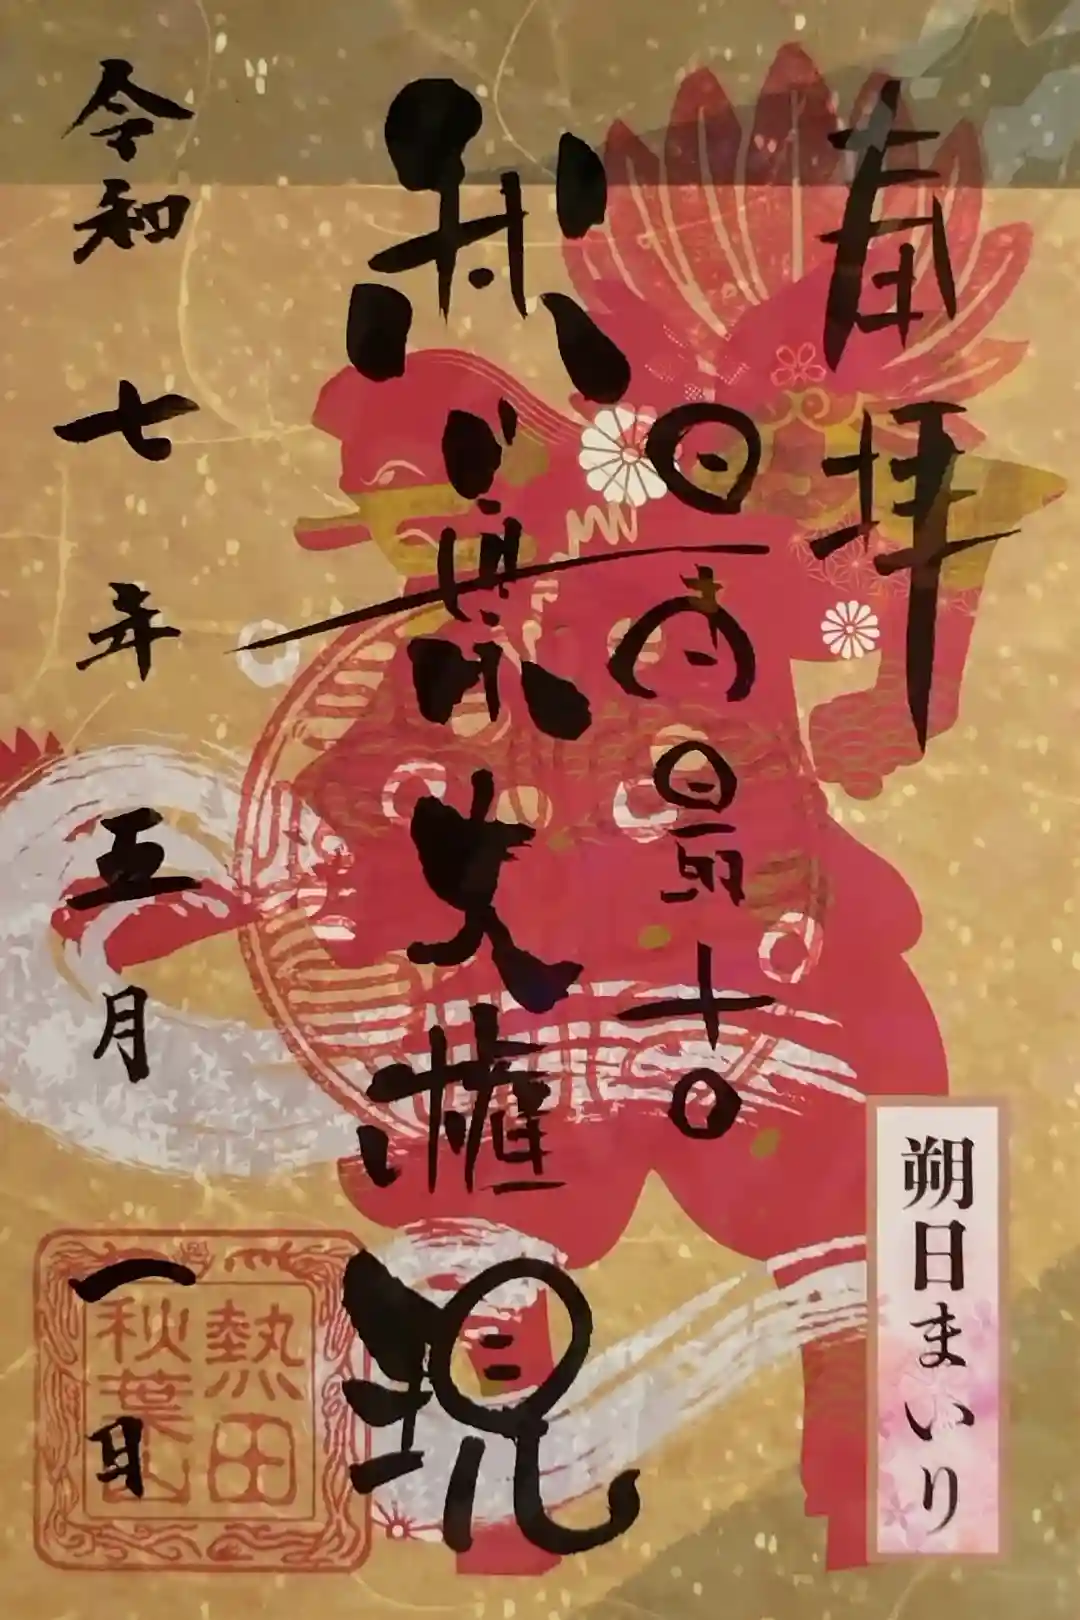 奉拝
日高最吉
秋葉大権現
令和七年五月一日
朔日まいり
熱田
秋葉山